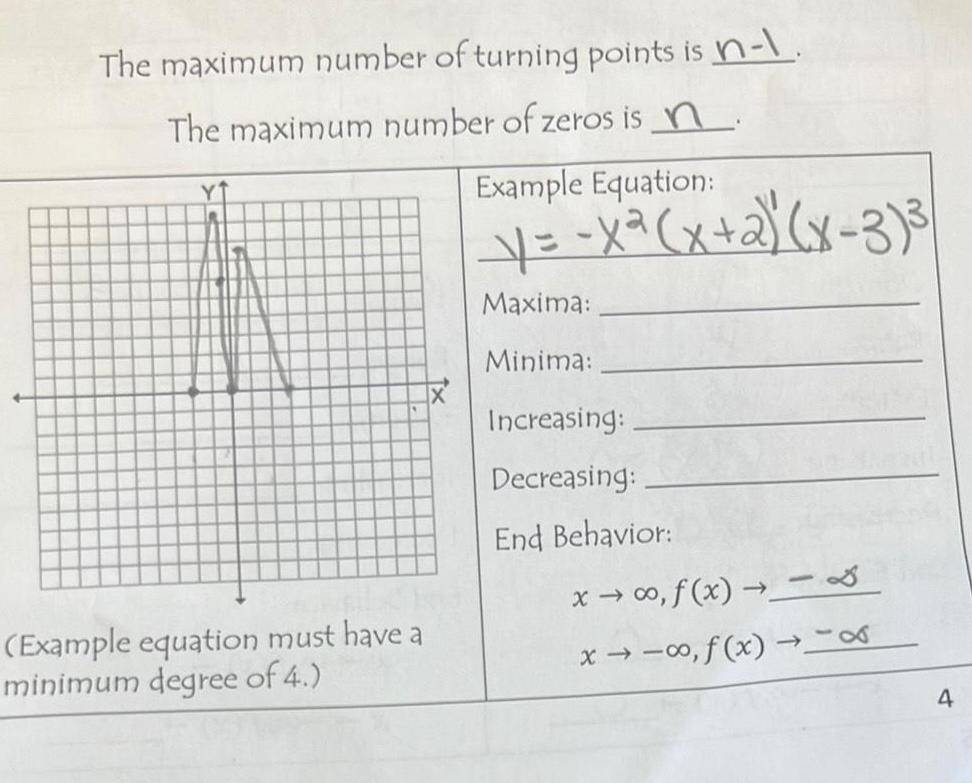 The maximum number of turning points is n-1.
The maximum number of zeros is n.
Y
X
(Example equation must have a
minimum degree of 4.)
Example Equation:
y = -x²(x+2)¹(x-3)³
Maxima:
Minima:
Increasing:
Decreasing:
End Behavior:
x → ∞, f(x) → -∞
x → -∞, f(x) → -∞
4